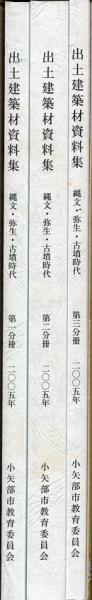 出土建築材資料集 縄文・弥生・古墳時代 第一分冊 二〇〇五年 小矢部市教育委員会
出土建築材資料集 縄文・弥生・古墳時代 第二分冊 二〇〇五年 小矢部市教育委員会
出土建築材資料集 縄文・弥生・古墳時代 第三分冊 二〇〇五年 小矢部市教育委員会